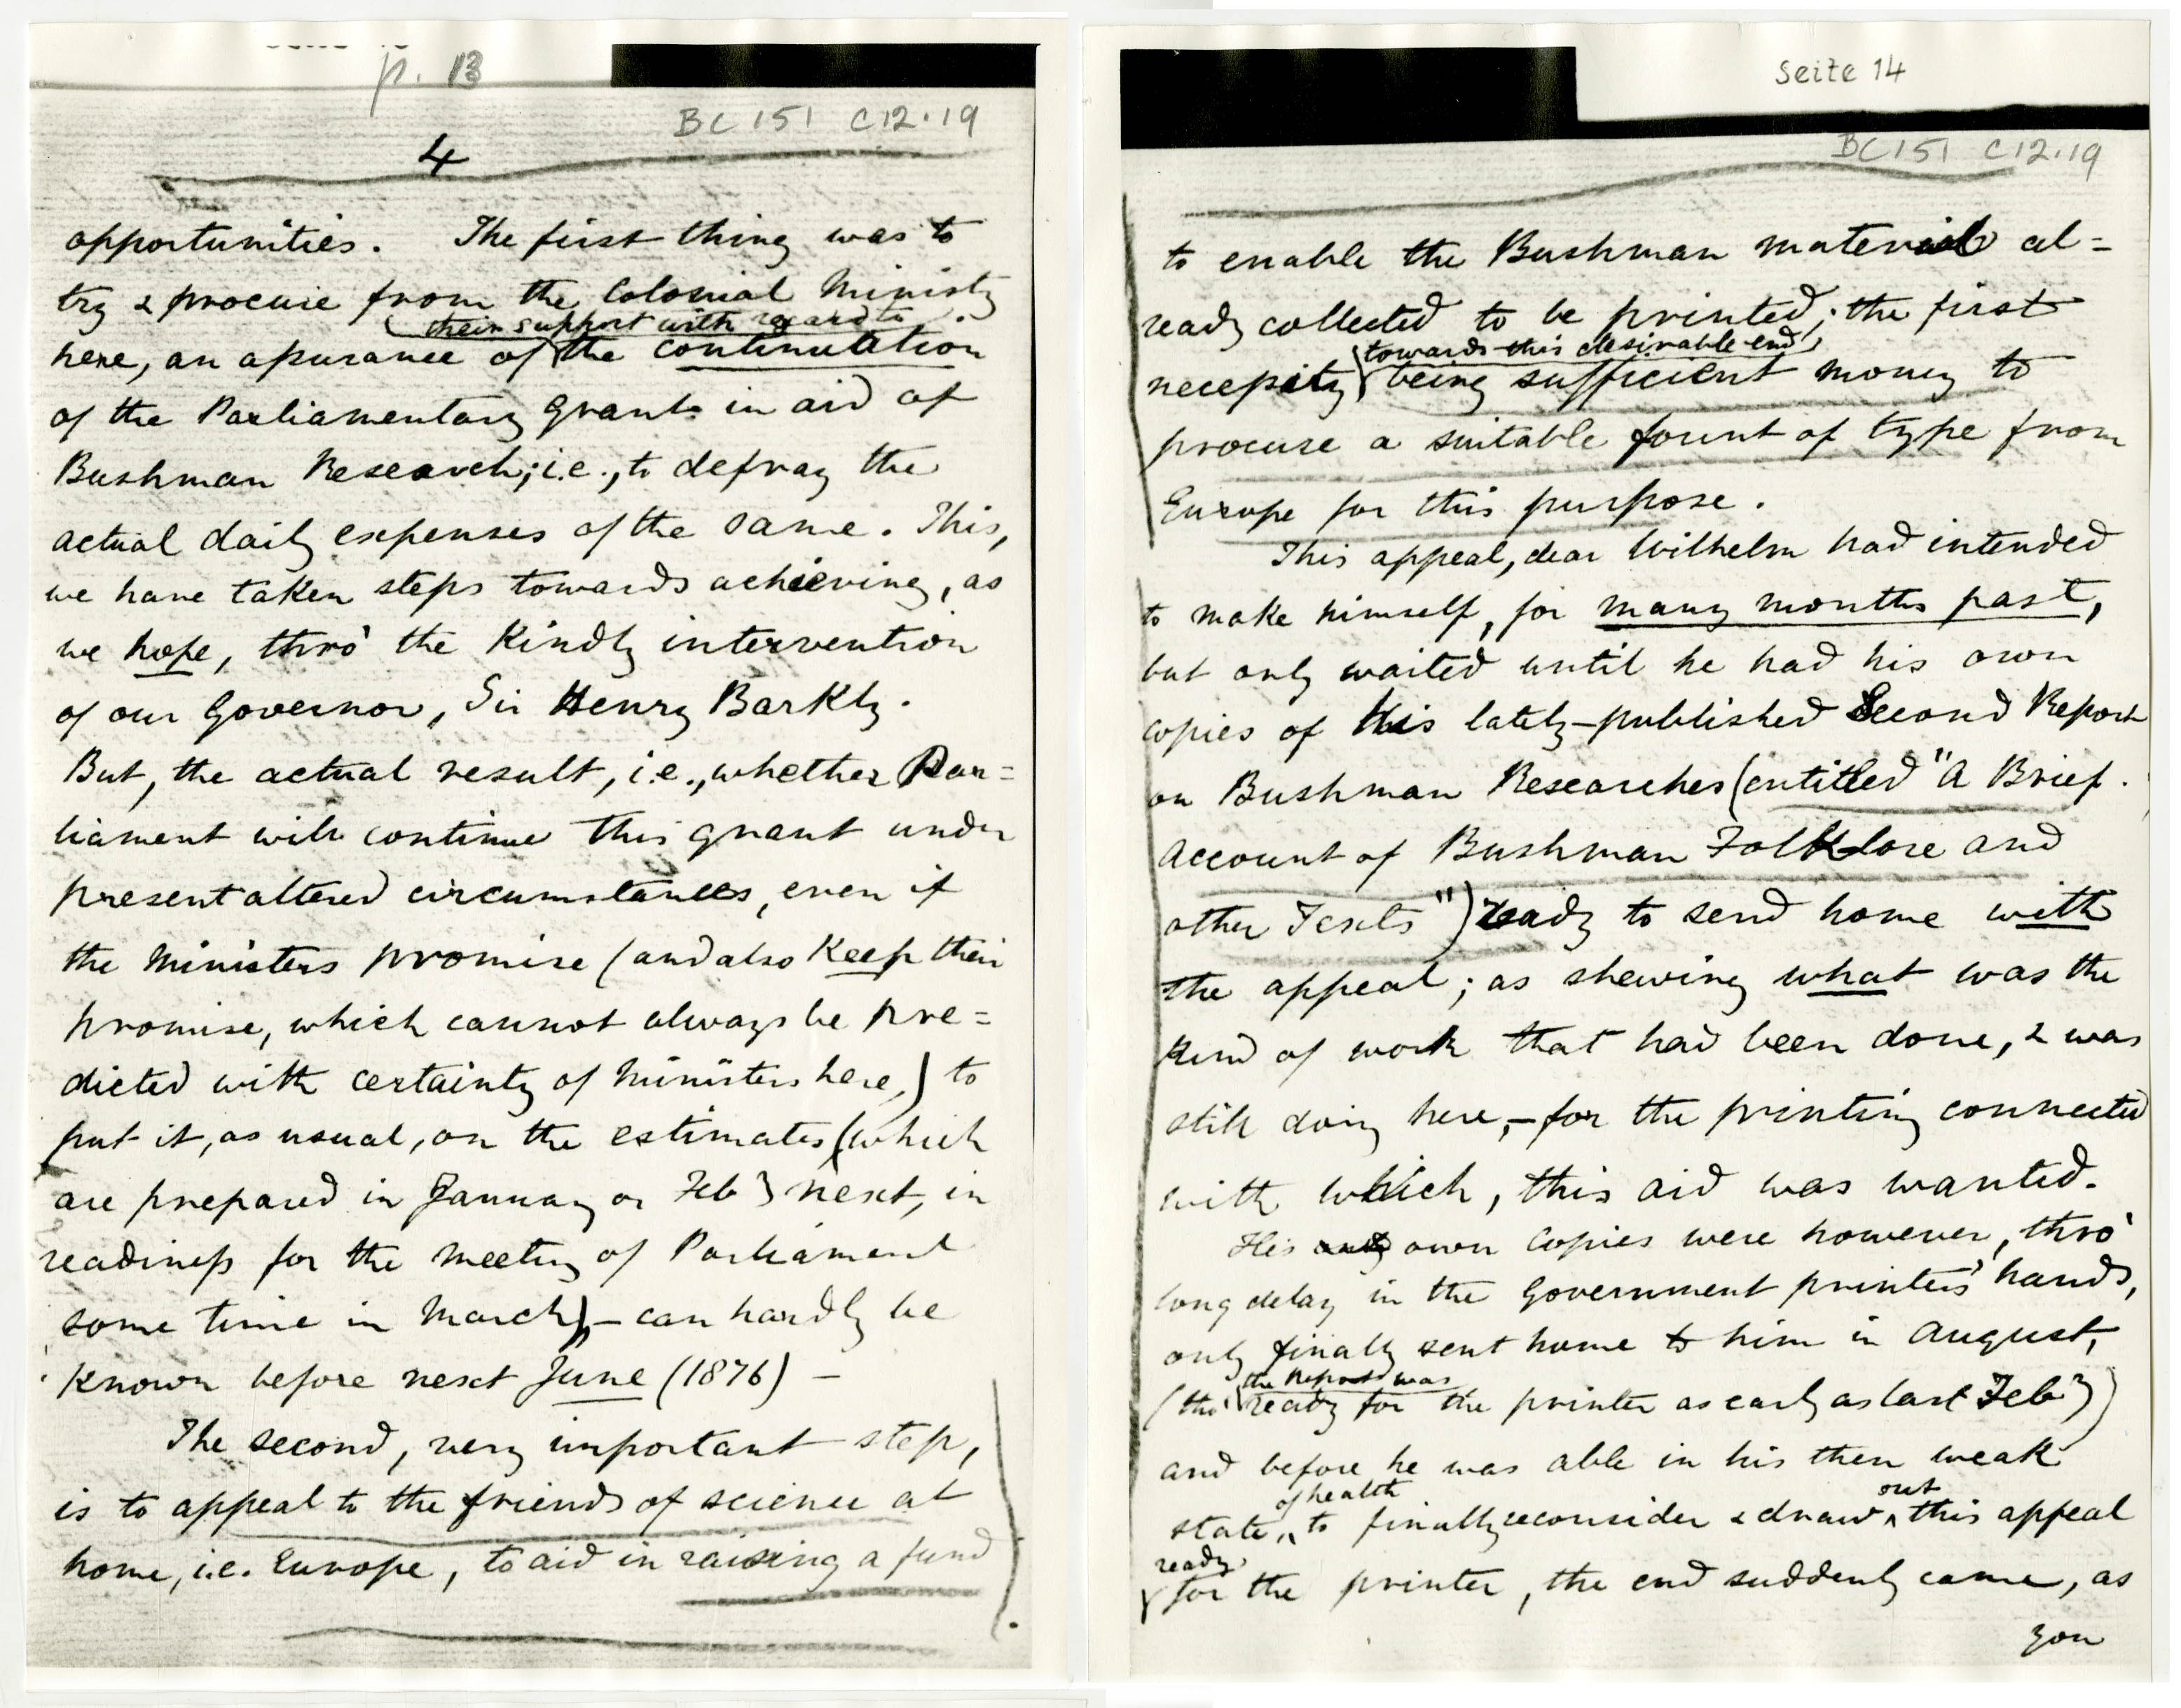 p. 13
BC 151 C12.19
4
opportunities. The first thing was to
try & procure from the Colonial Ministry
their support with regard to
here, an assurance of the continuation
of the Parliamentary Grants in aid of
Bushman Research; i.e., to defray the
actual daily expenses of the same. This,
we have taken steps towards achieving, as
we hope, thro' the kindly intervention
of our Governor, Sir Henry Barkly.
But, the actual result, i.e., whether Par=
liament will continue this grant under
present altered circumstances, even if
the Ministers promise (and also keep their
promise, which cannot always be pre=
dicted with certainty of Ministers here,) to
put it, as usual, on the estimates (which
are prepared in January or Feby next, in
readiness for the meeting of Parliament
some time in March), – can hardly be
known before next June (1876) –
The second, very important step,
is to appeal to the friends of science at
home, i.e. Europe, to aid in raising a fund
Seite 14
BC 151 C12.19
to enable the Bushman material al=
ready collected to be printed; the first
towards this desirable end,
necessity being sufficient money to
procure a suitable fount of type from
Europe for this purpose.
This appeal, dear Wilhelm had intended
to make himself, for many months past,
but only waited until he had his own
copies of his lately-published Second Report
on Bushman Researches (entitled "A Brief
Account of Bushman Folklore and
other Texts") ready to send home with
the appeal; as shewing what was the
kind of work that had been done, & was
still doing here, – for the printing connected
with which, this aid was wanted.
His own copies were however, thro'
long delay in the Government printers' hands,
only finally sent home to him in August,
the Report was
(tho' ready for the printer as early as last Feby)
and before he was able in his then weak
of health out
state, to finally reconsider & draw this appeal
ready
for the printer, the end suddenly came, as
you